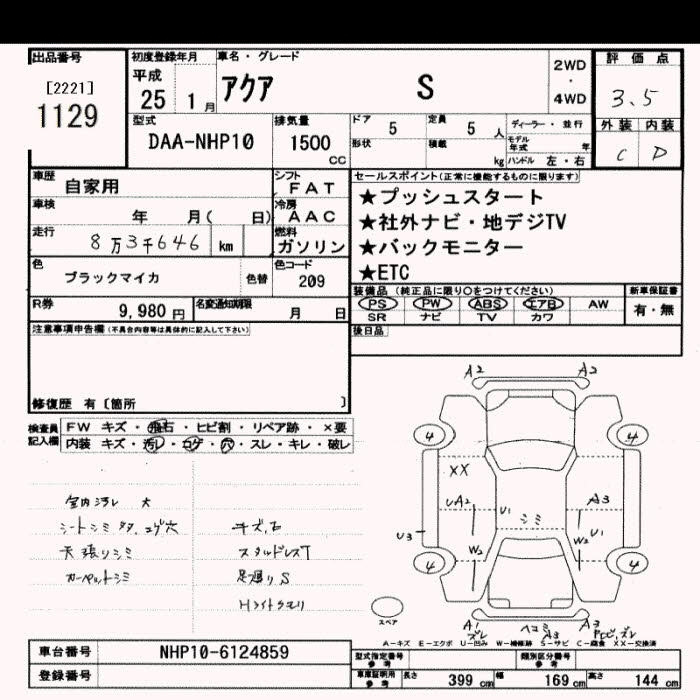 出品番号
[2221]
1129
初度登録年月
平成
25 1月
車名・グレード
アクア S
2WD
・
4WD
評価点
3.5
外装 内装
C D
型式
DAA-NHP10
排気量
1500
CC
ドア
5
定員
5 人
ディーラー・並行
形状
積載
kg
モデル年式 年
ハンドル 左・右
車歴
自家用
シフト
FAT
車検
年 月( 日)
冷房
AAC
走行
8万3千646 km
燃料
ガソリン
色
ブラックマイカ
色替
色コード
209
R券
9,980 円
名変通知期限
月 日
セールスポイント(正常に機能するものに限ります)
★プッシュスタート
★社外ナビ・地デジTV
★バックモニター
★ETC
装備品(純正品に限り○をつけてください)
PS PW ABS エアB AW
SR ナビ TV カワ
新車保証書
有・無
後日品
注意事項申告欄(不具合内容等は具体的に記入して下さい)
修復歴 有〔箇所 〕
検査員記入欄
FW キズ・飛石・ヒビ割・リペア跡・×要
内装 キズ・汚レ・コゲ・穴・スレ・キレ・破レ
室内汚レ 大
シートシミ多タ、コゲ穴
天張りシミ
カーペットシミ
キズ、石
スタッドレスT
足廻りS
Hライトクモリ
A2 A2
4 4
XX
UA2 U1 A3
シミ
U3 U1
W2 W2
4 4
スペア
A1 ズレ ヘコミ A3 A3 ズレ
A-キズ E-エクボ U-凹み W-補修跡 S-サビ C-腐食 XX-交換済
車台番号
NHP10-6124859
登録番号
型式指定番号
参考
類別区分番号
参考
車庫証明用
参考
長さ 399 cm 幅 169 cm 高さ 144 cm